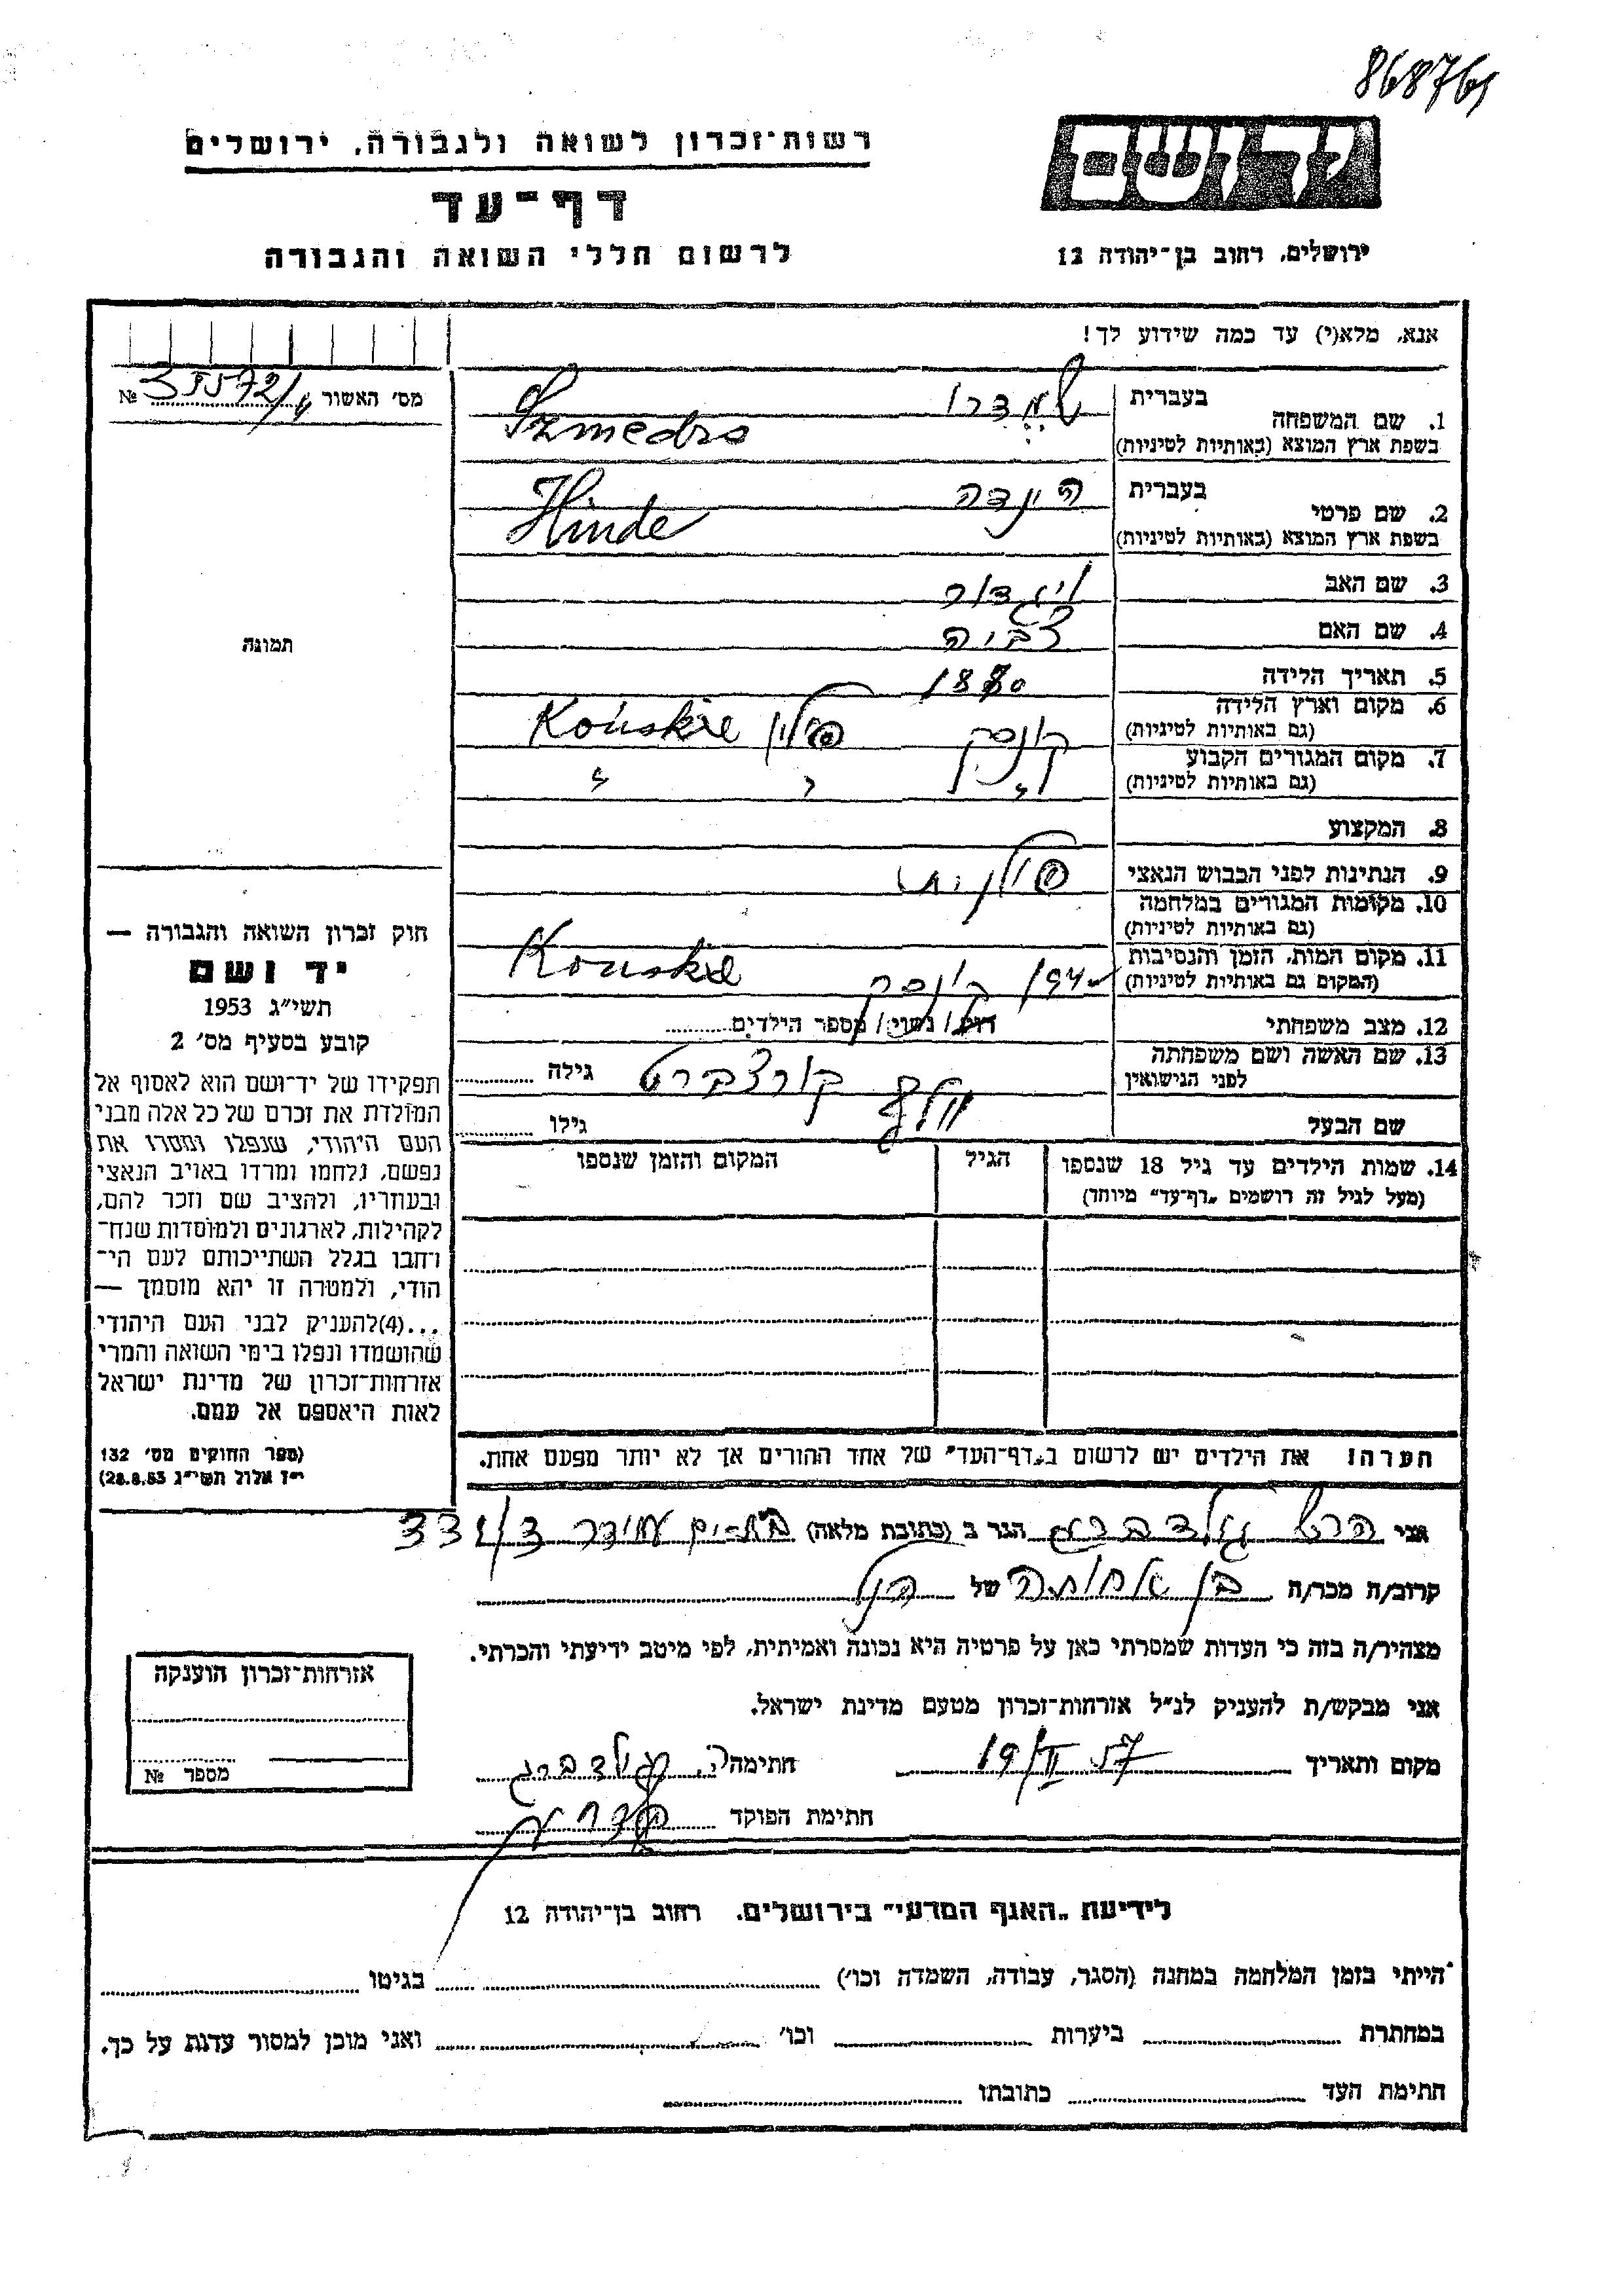 868769
רשות-זכרון לשואה ולגבורה, ירושלים
דף-עד
לרשום חללי השואה והגבורה
ידושם
ירושלים, רחוב בן-יהודה 12
אנא, מלא(י) עד כמה שידוע לך!
מס' האשור 35572/4 №
תמונה
1. שם המשפחה
בעברית שמדרו
בשפת ארץ המוצא (באותיות לטיניות) Szmedro
2. שם פרטי
בעברית הינדה
בשפת ארץ המוצא (באותיות לטיניות) Hinde
3. שם האב
4. שם האם צביה
5. תאריך הלידה 1880
6. מקום וארץ הלידה
(גם באותיות לטיניות) קונסק פולין Końskie
7. מקום המגורים הקבוע
(גם באותיות לטיניות) " " "
8. המקצוע
9. הנתינות לפני הכבוש הנאצי פולנית
10. מקומות המגורים במלחמה
(גם באותיות לטיניות)
11. מקום המות, הזמן והנסיבות
(המקום גם באותיות לטיניות) קונסק Końskie
12. מצב משפחתי רוק/ נשוי/ מספר הילדים
13. שם האשה ושם משפחתה
לפני הנישואין קורצברט גילה
שם הבעל וולף גילו
14. שמות הילדים עד גיל 18 שנספו
(מעל לגיל זה רושמים „דף-עד" מיוחד)
הגיל
המקום והזמן שנספו
חוק זכרון השואה והגבורה —
יד ושם
תשי״ג 1953
קובע בסעיף מס' 2
תפקידו של יד-ושם הוא לאסוף אל
המולדת את זכרם של כל אלה מבני
העם היהודי, שנפלו ומסרו את
נפשם, נלחמו ומרדו באויב הנאצי
ובעוזריו, ולהציב שם וזכר להם,
לקהילות, לארגונים ולמוסדות שנח-
רבו בגלל השתייכותם לעם הי-
הודי, ולמטרה זו יהא מוסמך —
...(4)להעניק לבני העם היהודי
שהושמדו ונפלו בימי השואה והמרי
אזרחות-זכרון של מדינת ישראל
לאות היאספם אל עמם.
(ספר החוקים מס' 132
י״ז אלול תשי״ג 28.8.53)
הערה! את הילדים יש לרשום ב„דף-העד" של אחד ההורים אך לא יותר מפעם אחת.
אני הרצל גולדברג הגר ב (כתובת מלאה) בת-ים עמידר
קרוב/ה מכר/ה בן אחותה של הנ"ל
מצהיר/ה בזה כי העדות שמסרתי כאן על פרטיה היא נכונה ואמיתית, לפי מיטב ידיעתי והכרתי.
אני מבקש/ת להעניק לנ״ל אזרחות-זכרון מטעם מדינת ישראל.
מקום ותאריך 19/II 57 חתימה ה. גולדברג
חתימת הפוקד
אזרחות-זכרון הוענקה
מספר №
לידיעת „האגף המדעי" בירושלים. רחוב בן-יהודה 12
הייתי בזמן המלחמה במחנה (הסגר, עבודה, השמדה וכו') בגיטו
במחתרת ביערות וכו' ואני מוכן למסור עדות על כך.
חתימת העד כתובתו